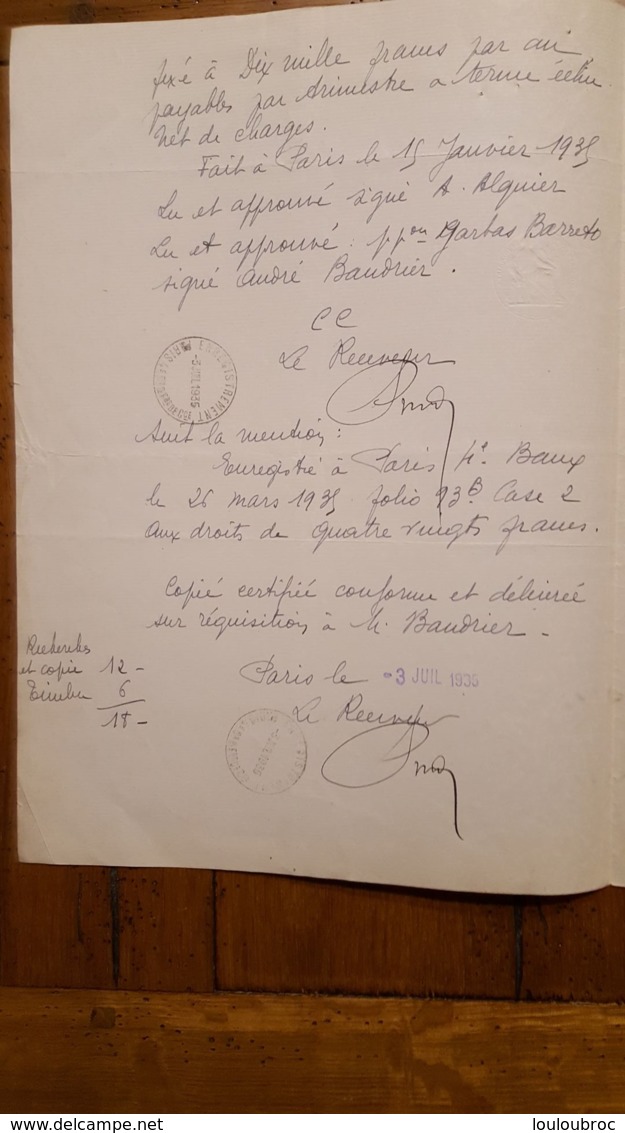 fixé à Dix mille francs par an
payables par trimestre à terme échu
net de charges.
Fait à Paris le 15 Janvier 1935
Lu et approuvé signé A. Alquier
Lu et approuvé : p.pon Barreto
signé André Baudrier.
CC
Le Receveur
ENREGISTREMENT PARIS
-3 JUIL 1935
Suit la mention :
Enregistré à Paris 4e Baux
le 26 mars 1935 folio 93B Case 2
Aux droits de quatre vingts francs.
Copié certifiée conforme et délivrée
sur réquisition à M. Baudrier -
Recherches
et copie 12 -
Timbre 6
18 -
Paris le -3 JUIL 1935
Le Receveur
Delcampe.net
louloubroc